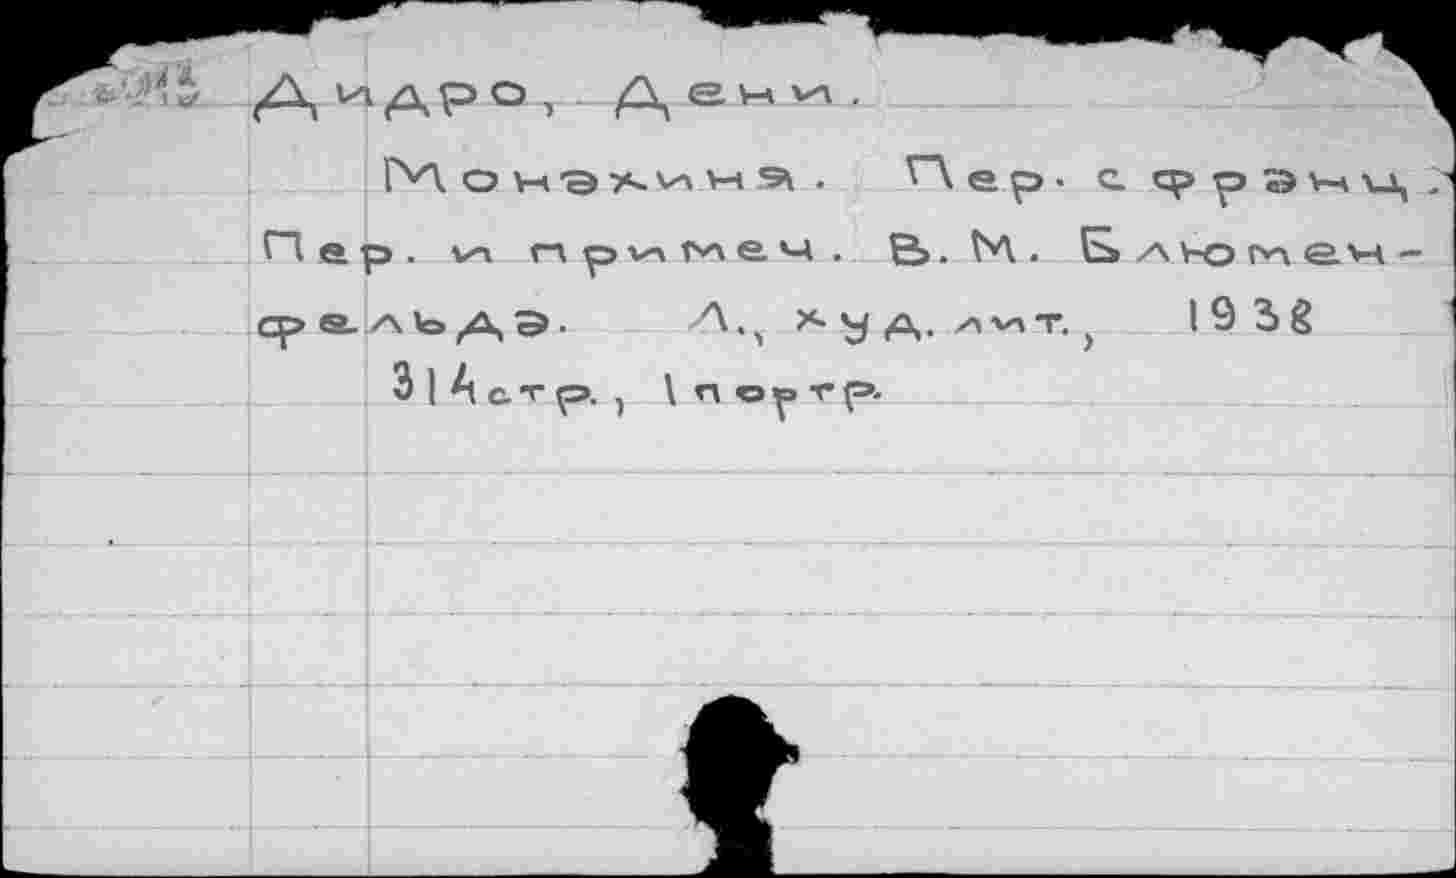 Дидро, Дени.
Монахиня. Пер. с франц.
Пер. и примеч. В. М. Блюмен-
фельда. Л., худ. лит., 1938
314 стр., 1 портр.